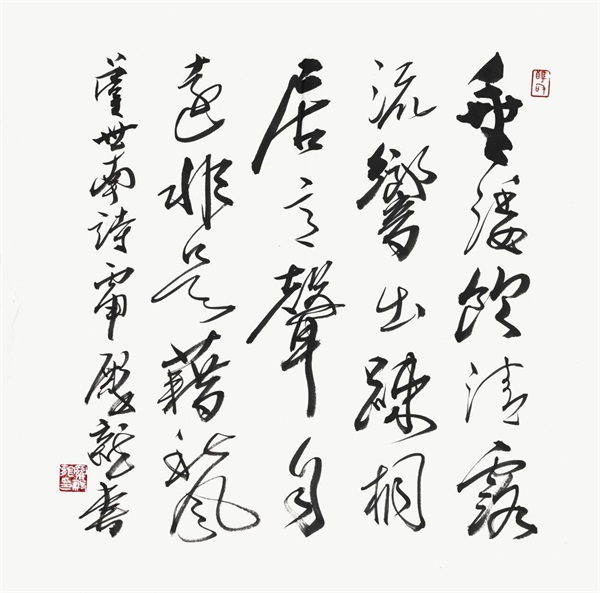 垂緌飲清露
流響出疎桐
居高聲自
遠非是藉秋風
虞世南詩龍書